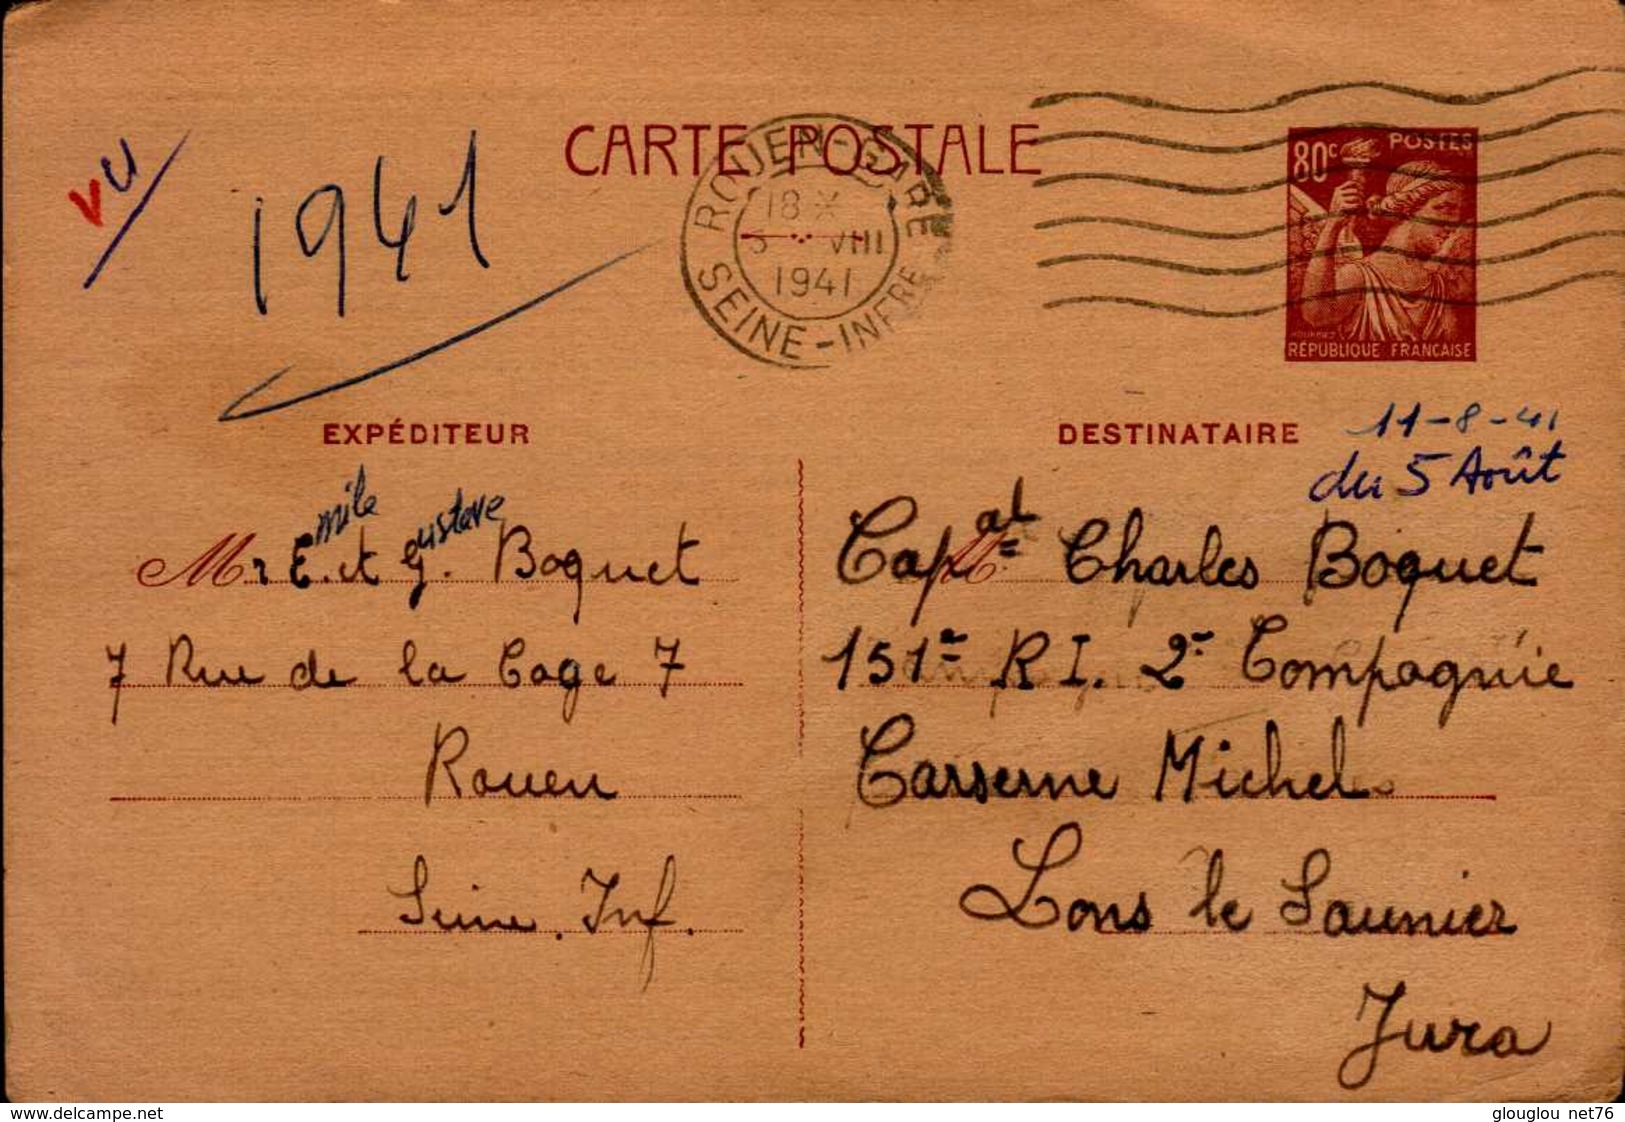 vu
1941
CARTE POSTALE
ROUEN-GARE
18 X
5 VIII
1941
SEINE-INFRE
80c POSTES
RÉPUBLIQUE FRANÇAISE
EXPÉDITEUR
DESTINATAIRE
11-8-41
du 5 Août
mile
ustave
Mr E. et G. Boquet
7 Rue de la Cage 7
Rouen
Seine. Inf.
Capal Charles Boquet
151e R I. 2e Compagnie
Carserne Michel.
Lons le Saunier
Jura
www.delcampe.net
glouglou net76